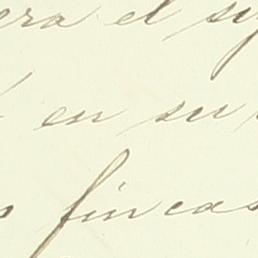 era el sy
en su
fincas